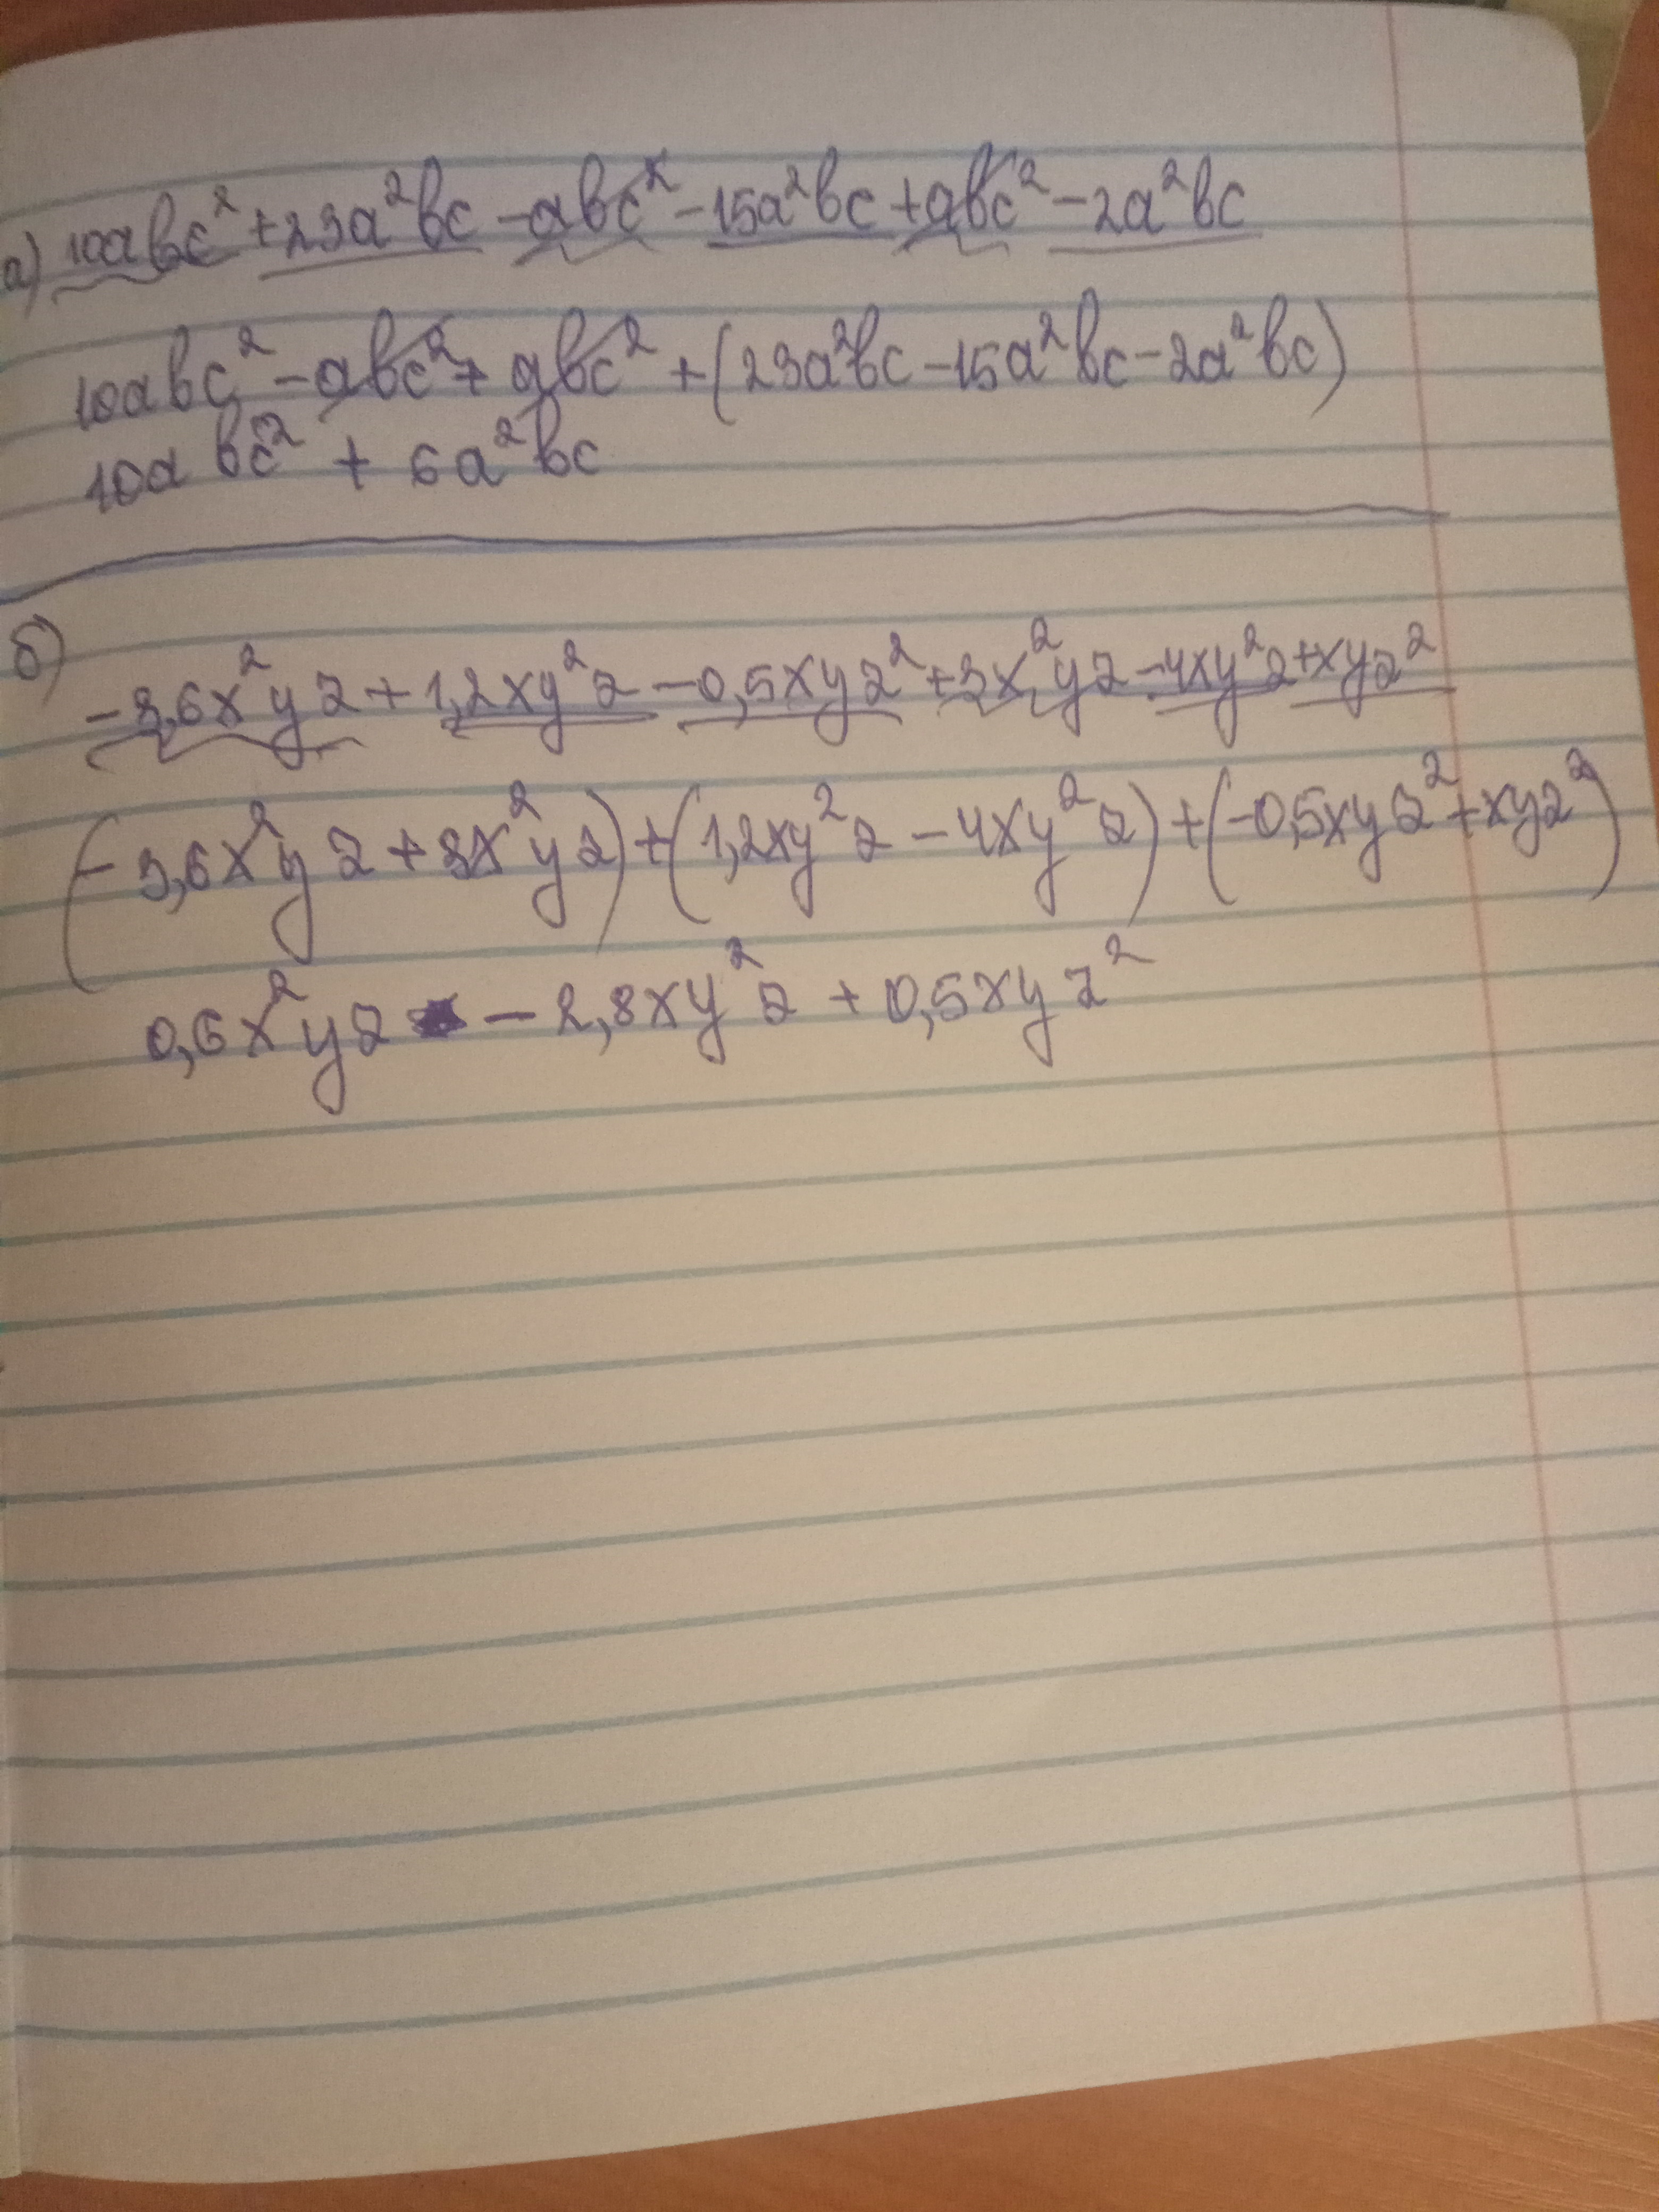 а) 10abc² + 23a²bc - abc² - 15a²bc + abc² - 2a²bc
10abc² - abc² + abc² + (23a²bc - 15a²bc - 2a²bc)
10abc² + 6a²bc
б)
-3,6x²yz + 1,2xy²z - 0,5xyz² + 3x²yz - 4xy²z + xyz²
(-3,6x²yz + 3x²yz) + (1,2xy²z - 4xy²z) + (-0,5xyz² + xyz²)
0,6x²yz - 2,8xy²z + 0,5xyz²